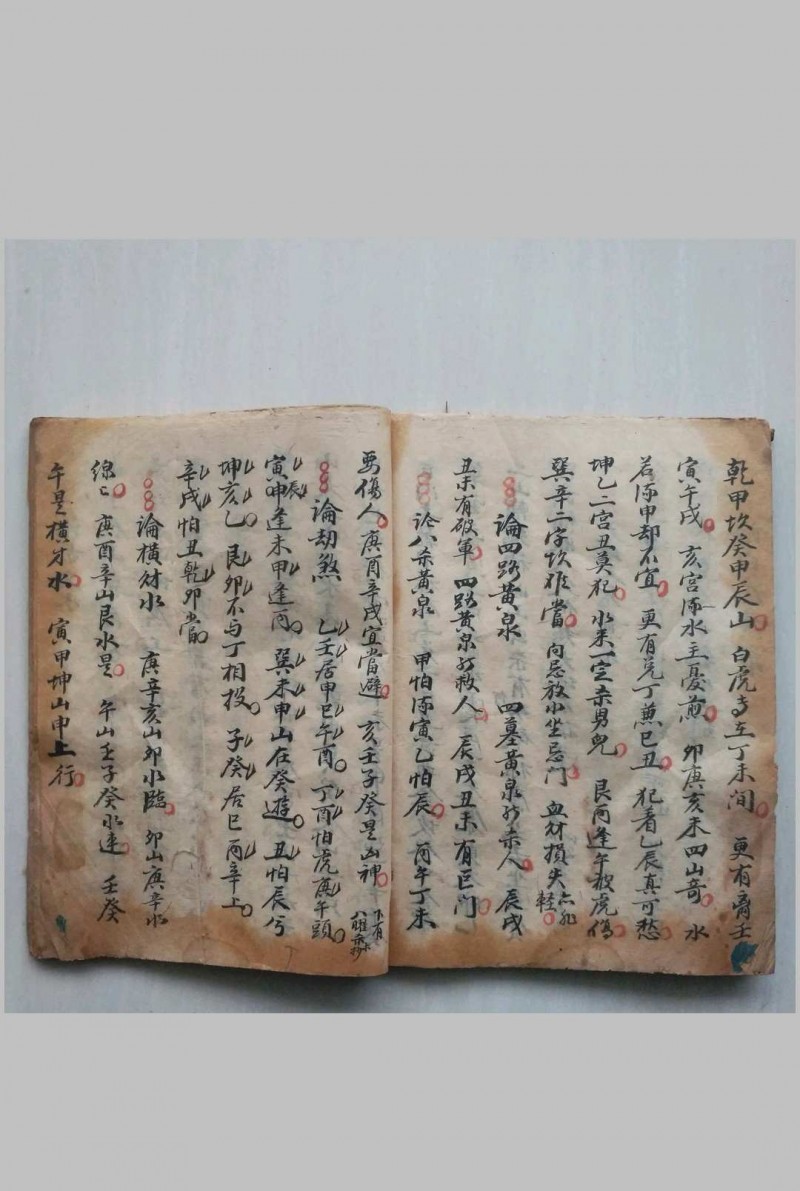 乾甲坎癸申辰山 白虎寺在丁未间 更有商壬
寅午戌 亥宫流水主憂煎 卯庚亥未四山奇 水
若流申却不宜 更有兑丁兼巳丑 犯着乙辰真可愁
坤乙二宫丑莫犯 水来一定杀男兒 艮丙逢午被虎傷
巽辛二字坎难當 向忌放小坐忌门 血财損失 轻
論四路黄泉 四墓黄泉能杀人 辰戌
丑未有破軍 四路黄泉能救人 辰戌丑未有巨门
论八杀黄泉 甲怕流寅乙怕辰 丙午丁未
要傷人 庚酉辛戌宜當避 亥壬子癸是凶神 下有
論劫煞 乙壬居申巳午酉 丁酉怕虎庚午頭
寅申辰逢未甲逢丙 巽未申山在癸遊 丑怕辰兮
坤亥乙 艮卯不与丁相投 子癸居巳丙辛上
辛戌怕丑乾卯當
論横财水 庚辛亥山卯水臨 卯山庚辛水
庚酉辛山艮水是 午山壬子癸水速 壬癸
午是横才水 寅甲坤山申上行